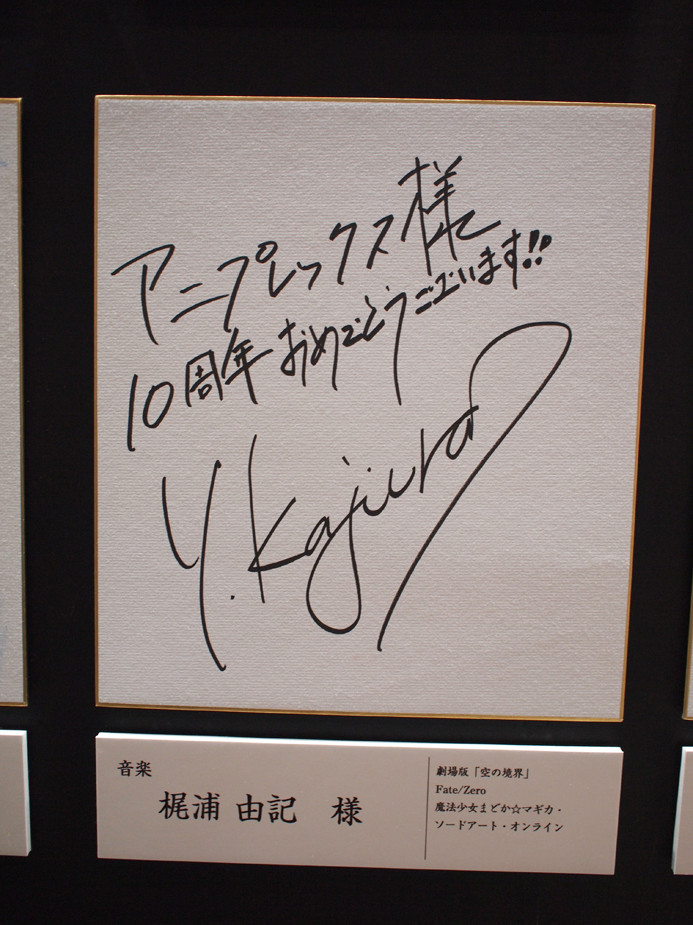 アニプレックス様
10周年おめでとうございます!!
Y.Kajiura
音楽
梶浦 由記 様
劇場版「空の境界」
Fate/Zero
魔法少女まどか☆マギカ・
ソードアート・オンライン